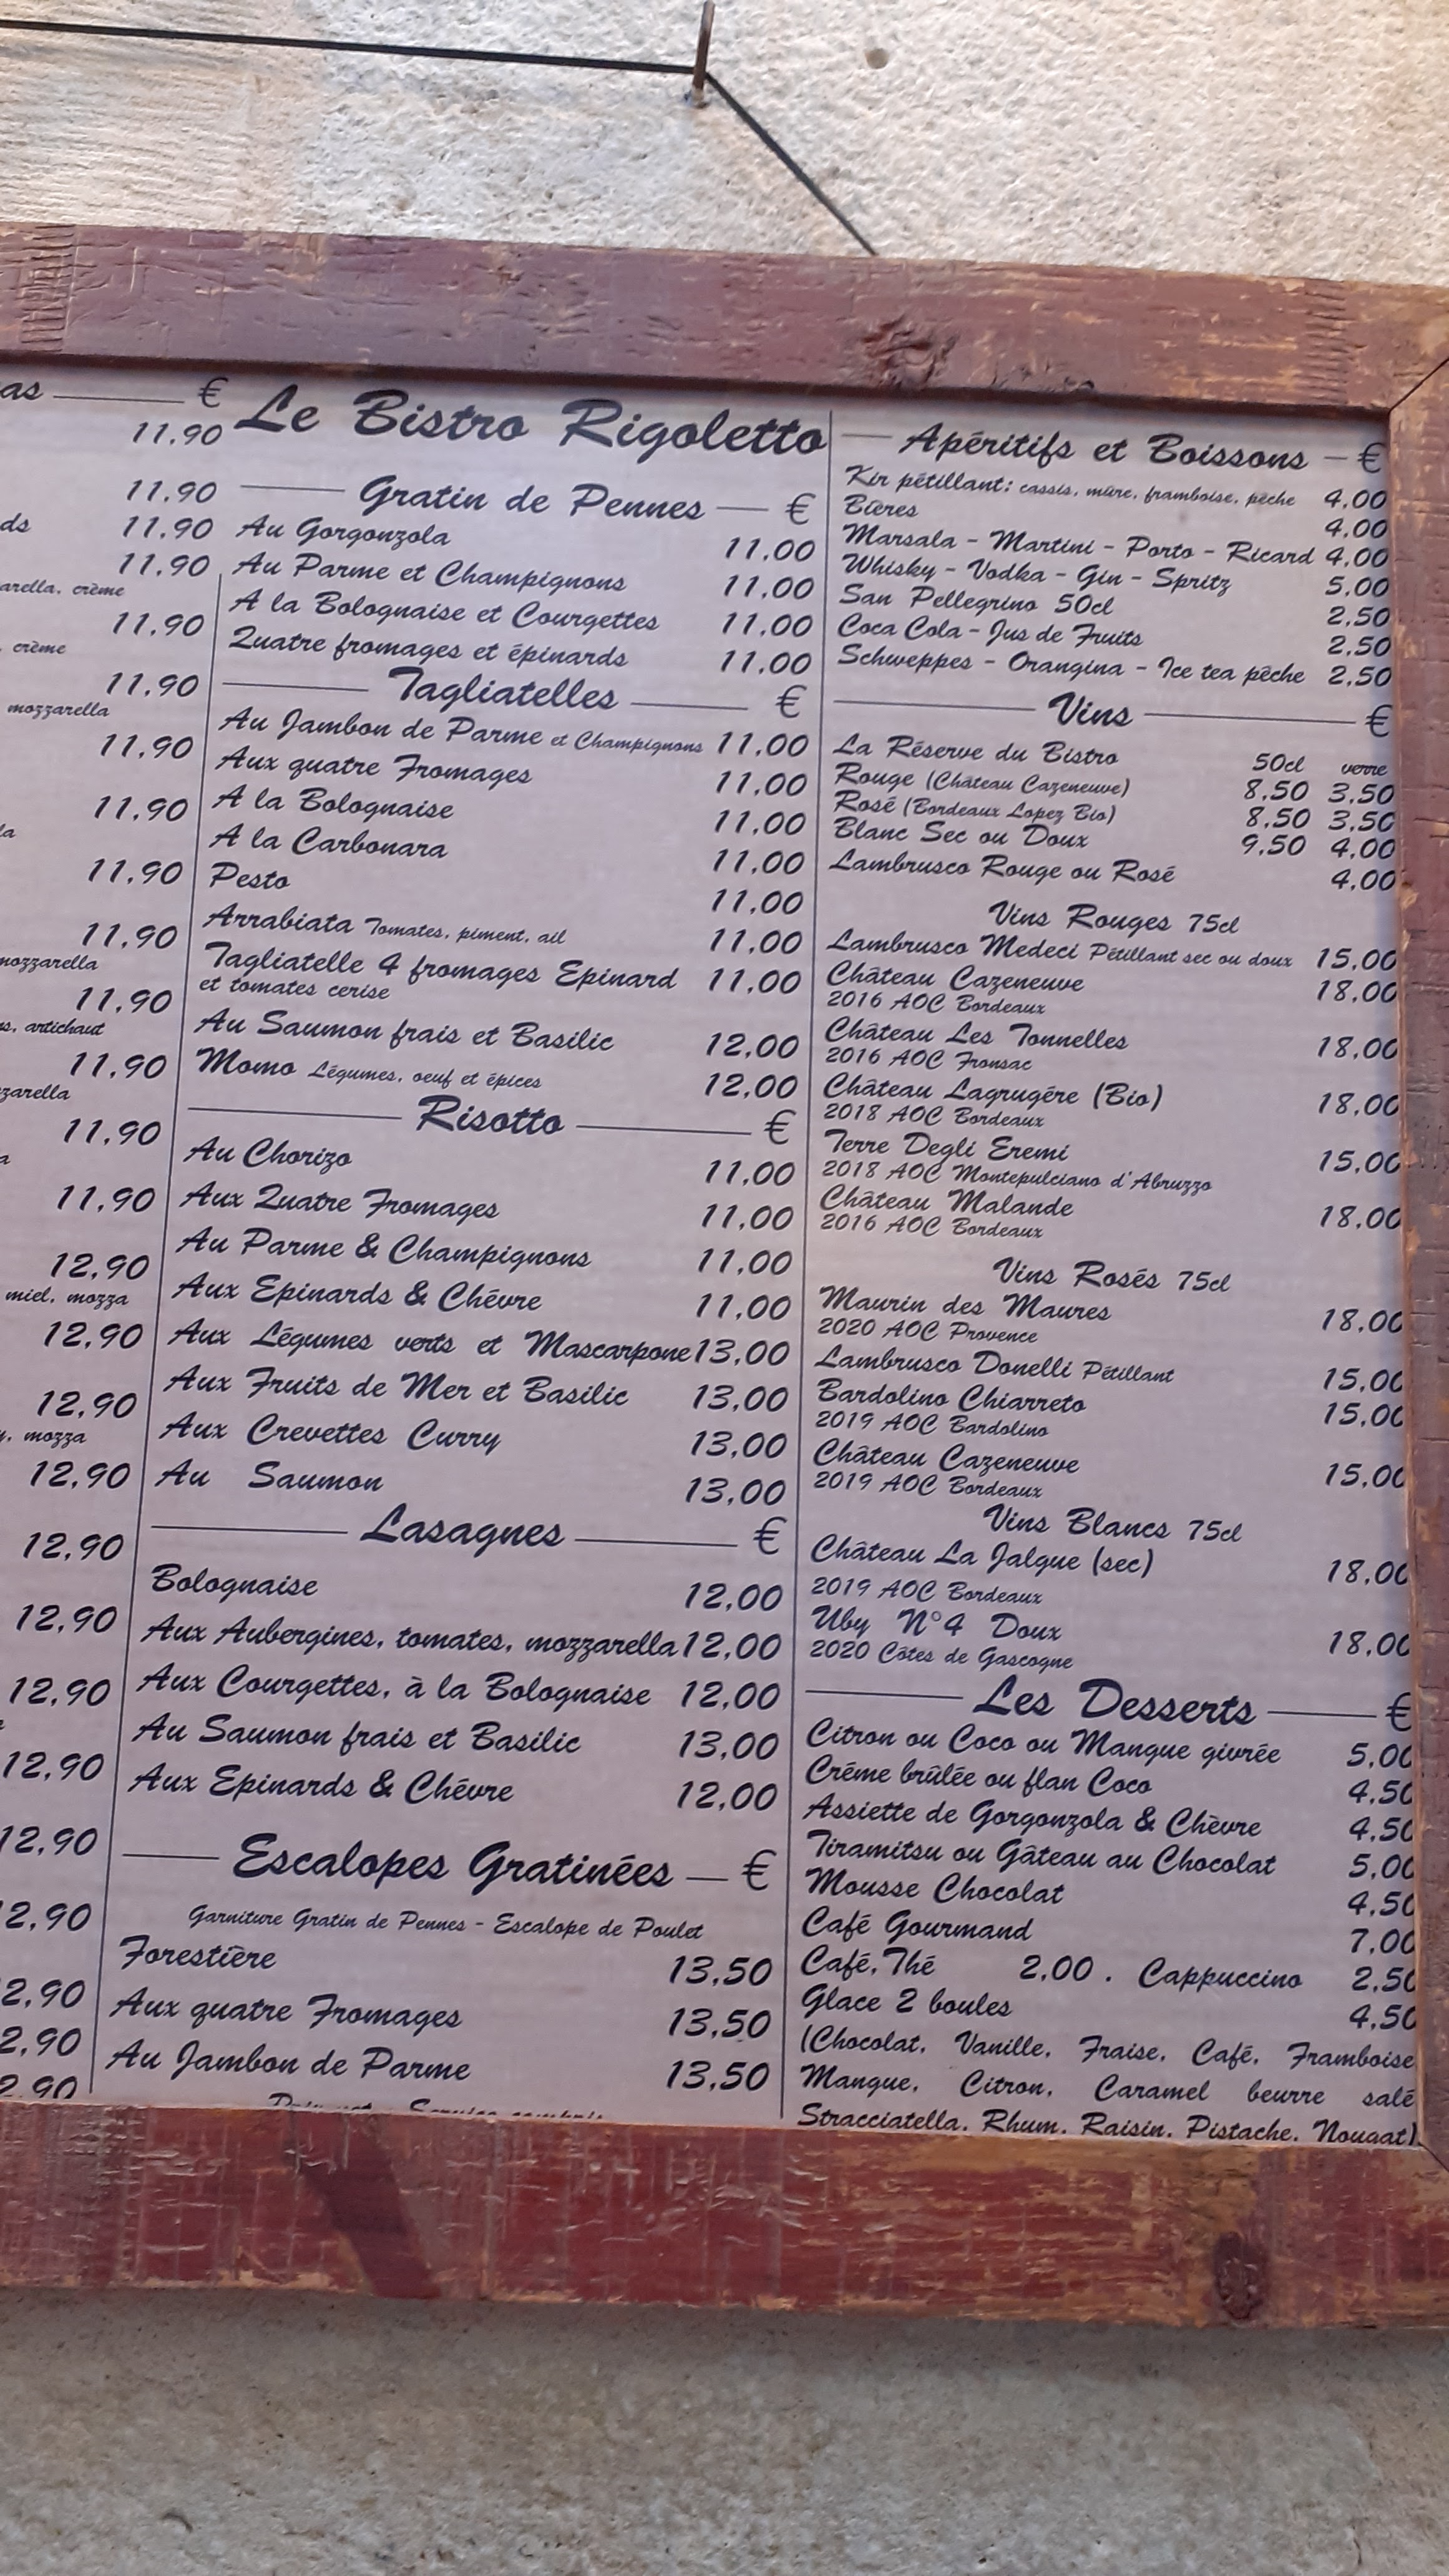 as €
11.90
11.90
ds 11.90
11.90
arella, crème
11.90
, crème
11.90
mozzarella
11.90
11.90
la
11.90
11.90
mozzarella
11.90
s, artichaut
11.90
zarella
11.90
a
11.90
12.90
miel, mozza
12.90
12.90
y, mozza
12.90
12.90
12.90
12.90
12.90
12.90
2.90
2.90
2.90
2.90
Le Bistro Rigoletto
Gratin de Pennes €
Au Gorgonzola 11.00
Au Parme et Champignons 11.00
A la Bolognaise et Courgettes 11.00
Quatre fromages et épinards 11.00
Tagliatelles €
Au Jambon de Parme et Champignons 11.00
Aux quatre Fromages 11.00
A la Bolognaise 11.00
A la Carbonara 11.00
Pesto 11.00
Arrabiata Tomates, piment, ail 11.00
Tagliatelle 4 fromages Epinard 11.00
et tomates cerise
Au Saumon frais et Basilic 12.00
Momo Légumes, oeuf et épices 12.00
Risotto €
Au Chorizo 11.00
Aux Quatre Fromages 11.00
Au Parme & Champignons 11.00
Aux Epinards & Chévre 11.00
Aux Légumes verts et Mascarpone 13.00
Aux Fruits de Mer et Basilic 13.00
Aux Crevettes Curry 13.00
Au Saumon 13.00
Lasagnes €
Bolognaise 12.00
Aux Aubergines, tomates, mozzarella 12.00
Aux Courgettes, à la Bolognaise 12.00
Au Saumon frais et Basilic 13.00
Aux Epinards & Chévre 12.00
Escalopes Gratinées €
Garniture Gratin de Pennes - Escalope de Poulet
Forestière 13.50
Aux quatre Fromages 13.50
Au Jambon de Parme 13.50
Apéritifs et Boissons €
Kir pétillant: cassis, mûre, framboise, pêche 4.00
Bières 4.00
Marsala - Martini - Porto - Ricard 4.00
Whisky - Vodka - Gin - Spritz 5.00
San Pellegrino 50cl 2.50
Coca Cola - Jus de Fruits 2.50
Schweppes - Orangina - Ice tea pêche 2.50
Vins €
La Réserve du Bistro 50cl verre
Rouge (Château Cazeneuve) 8.50 3.50
Rosé (Bordeaux Lopez Bio) 8.50 3.50
Blanc Sec ou Doux 9.50 4.00
Lambrusco Rouge ou Rosé 4.00
Vins Rouges 75cl
Lambrusco Medeci Pétillant sec ou doux 15.00
Château Cazeneuve 18.00
2016 AOC Bordeaux
Château Les Tonnelles 18.00
2016 AOC Fronsac
Château Lagrugére (Bio) 18.00
2018 AOC Bordeaux
Terre Degli Eremi 15.00
2018 AOC Montepulciano d'Abruzzo
Château Malande 18.00
2016 AOC Bordeaux
Vins Rosés 75cl
Maurin des Maures 18.00
2020 AOC Provence
Lambrusco Donelli Pétillant 15.00
Bardolino Chiarreto 15.00
2019 AOC Bardolino
Château Cazeneuve 15.00
2019 AOC Bordeaux
Vins Blancs 75cl
Château La Jalgue (sec) 18.00
2019 AOC Bordeaux
Uby N°4 Doux 18.00
2020 Côtes de Gascogne
Les Desserts €
Citron ou Coco ou Mangue givrée 5.00
Créme brûlée ou flan Coco 4.50
Assiette de Gorgonzola & Chèvre 4.50
Tiramitsu ou Gâteau au Chocolat 5.00
Mousse Chocolat 4.50
Café Gourmand 7.00
Café, Thé 2.00 . Cappuccino 2.50
Glace 2 boules 4.50
(Chocolat, Vanille, Fraise, Café, Framboise
Mangue, Citron, Caramel beurre salé
Stracciatella, Rhum, Raisin, Pistache, Nougat)